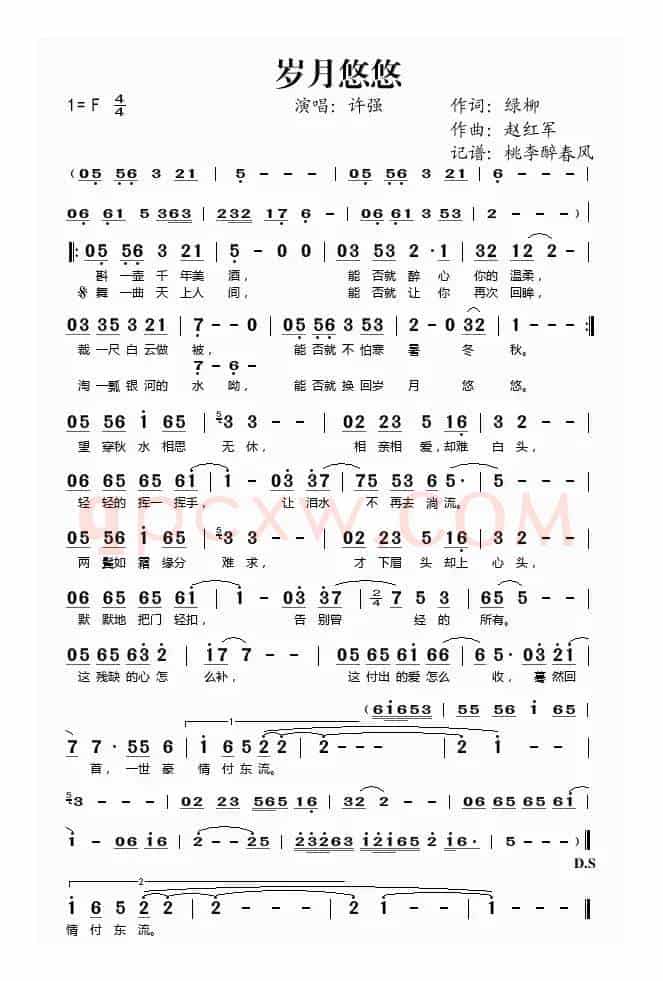 岁月悠悠
1=F 4/4 演唱：许强 作词：绿柳
作曲：赵红军
记谱：桃李醉春风
(05 56 3 21 | 5 - - - | 05 56 3 21 | 6 - - - |
06 61 5 363 | 232 17 6 - | 06 61 3 53 | 2 - - - ) |
‖: 05 56 3 21 | 5 - 0 0 | 03 53 2 · 1 | 32 12 2 - |
斟一壶千年美酒， 能否就醉心你的温柔，
舞一曲天上人间， 能否就让你再次回眸，
03 35 3 21 | 7 - - 0 | 05 56 3 53 | 2 - 0 32 | 1 - - - :‖
裁一尺白云做被， 能否就不怕寒暑冬秋。
7 - 6 -
淘一瓢银河的水呦， 能否就换回岁月悠悠。
05 56 1 65 | 5 3 3 - - | 02 23 5 16 | 2 - - - |
望穿秋水相思无休， 相亲相爱，却难白头，
06 65 65 61 | 1 - - 03 37 | 75 53 6 5· | 5 - - - |
轻轻的挥一挥手， 让泪水不再去淌流。
qpcxw.COM
05 56 1 65 | 5 3 3 - - | 02 23 5 16 | 2 - - - |
两鬓如霜缘分难求， 才下眉头却上心头，
06 65 65 61 | 1 - 03 37 | 2/4 7 5 3 | 65 5 - - |
默默地把门轻扣， 告别曾经的所有。
05 65 63 2 | 17 7 - - | 05 65 61 66 | 6 5· 03 21 |
这残缺的心怎么补， 这付出的爱怎么收，蓦然回
(61653 | 55 55 56 1 |
1
7 7· 55 6 | 1 65 2 2 | 2 - - - | 2 1 - - |
首，一世豪情付东流。
5 3 - - - | 02 23 565 16 | 32 2 - - | 06 65 65 61 |
1 - 06 16 | 2 - - 25 | 23263 12165 61 16· | 5 - - - ) ‖
D.S
2
1 6 5 2 2 | 2 - - - | 2 - - - | 2 - 1 - | 1 - - - ‖
情付东流。